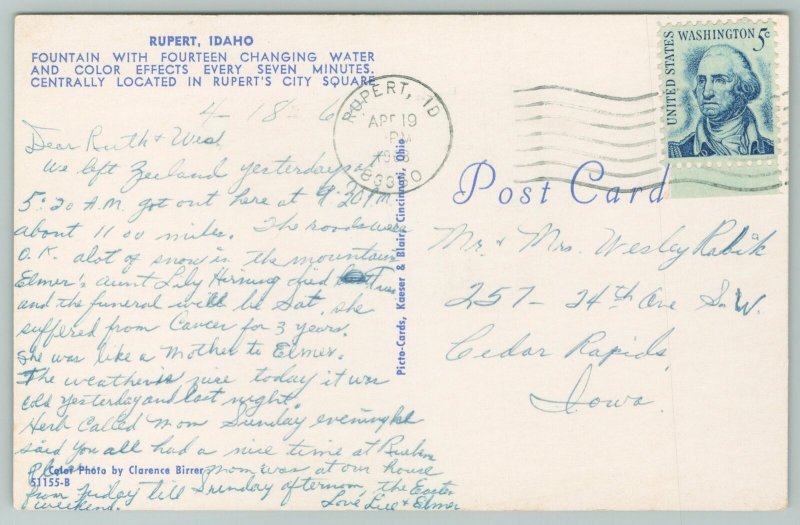 RUPERT, IDAHO
FOUNTAIN WITH FOURTEEN CHANGING WATER
AND COLOR EFFECTS EVERY SEVEN MINUTES.
CENTRALLY LOCATED IN RUPERT'S CITY SQUARE
4-18-6
Dear Ruth & Wes.
We left Zeeland yesterday
5:20 A.M. got out here at 9:20 P.M.
about 1100 miles. The roads were
O.K. alot of snow in the mountain
Elmer's aunt Lily Hirning died
and the funeral will be Sat. she
suffered from Cancer for 3 years.
She was like a Mother to Elmer.
The weather is nice today it was
cold yesterday and last night.
Herb Called Mom Sunday evening
said you all had a nice time at
Place. mom was at our house
from Friday till Sunday afternoon, the Easter
weekend. Love, Lill & Elmer
Color Photo by Clarence Birrer
51155-B
Picto-Cards, Kaeser & Blair, Cincinnati, Ohio
RUPERT, ID
APR 19
PM
UNITED STATES WASHINGTON 5c
Post Card
Mr. & Mrs. Wesley Rabik
257-24th Ave S.W.
Cedar Rapids,
Iowa.